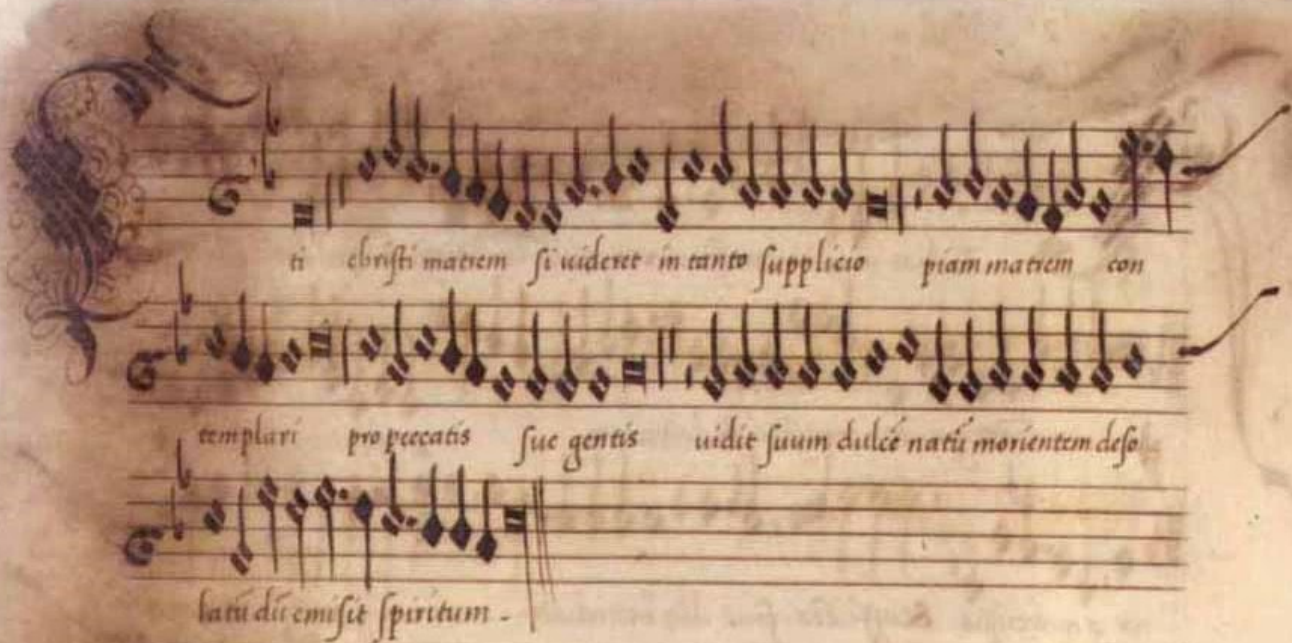 ti christi matrem si uideret in tanto supplicio piam matrem con
templari pro peccatis sue gentis uidit suum dulcē natū morientem deso
latū dū emisit spiritum -